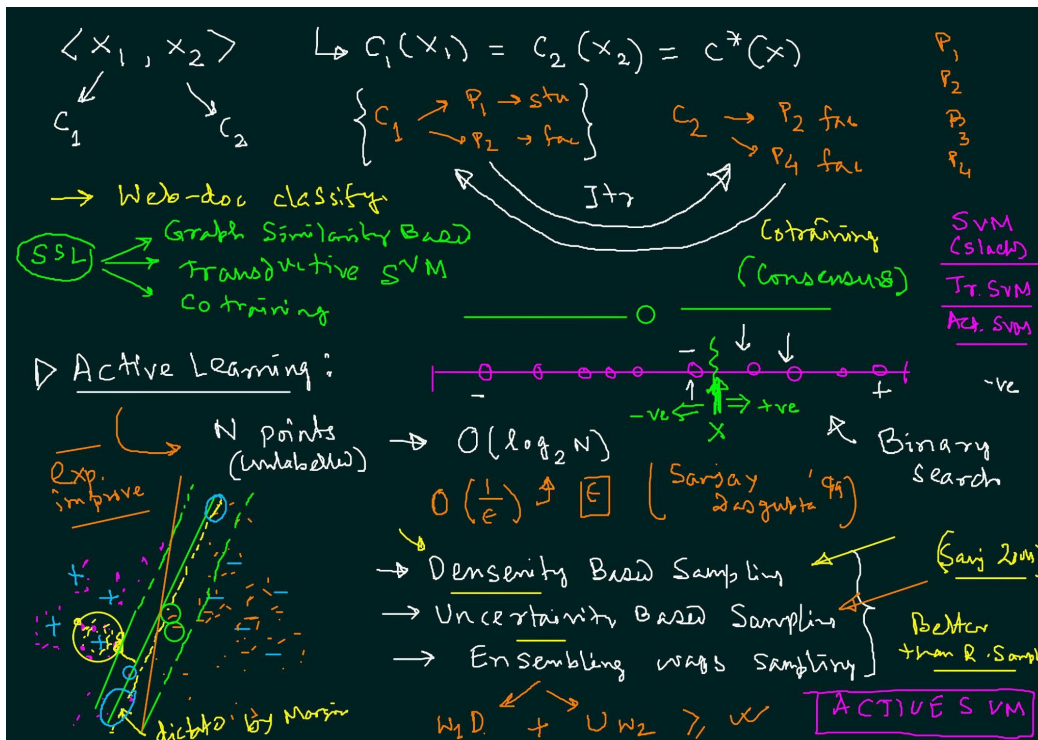 ⟨x₁, x₂⟩ ↳ C₁(x₁) = C₂(x₂) = c*(x)
C₁ C₂
C₁ → P₁ → stu
→ P₂ → fac
C₂ → P₂ fac
→ P₄ fac
P₁
P₂
P₃
P₄
Itr
→ Web-doc classify.
SSL
Graph Similarity Based
Transductive SVM
Cotraining
Cotraining
(Consensus)
SVM
(slack)
Tr. SVM
Act. SVM
▷ Active Learning:
- - + -ve
-ve ⇐ ⇒ +ve
X
N points
(unlabelled)
→ O(log₂ N)
Binary
search
exp.
improve
O(1/ε) ε
(Sanjay
Dasgupta '99)
→ Densenity Based Sampling
→ Uncertainity Based Sampling
→ Ensembling ways sampling
Better
than R. Sampl
+ + + + - - - -
dictate by Margin
W₁D. + U W₂ ≥ W
ACTIVE SVM